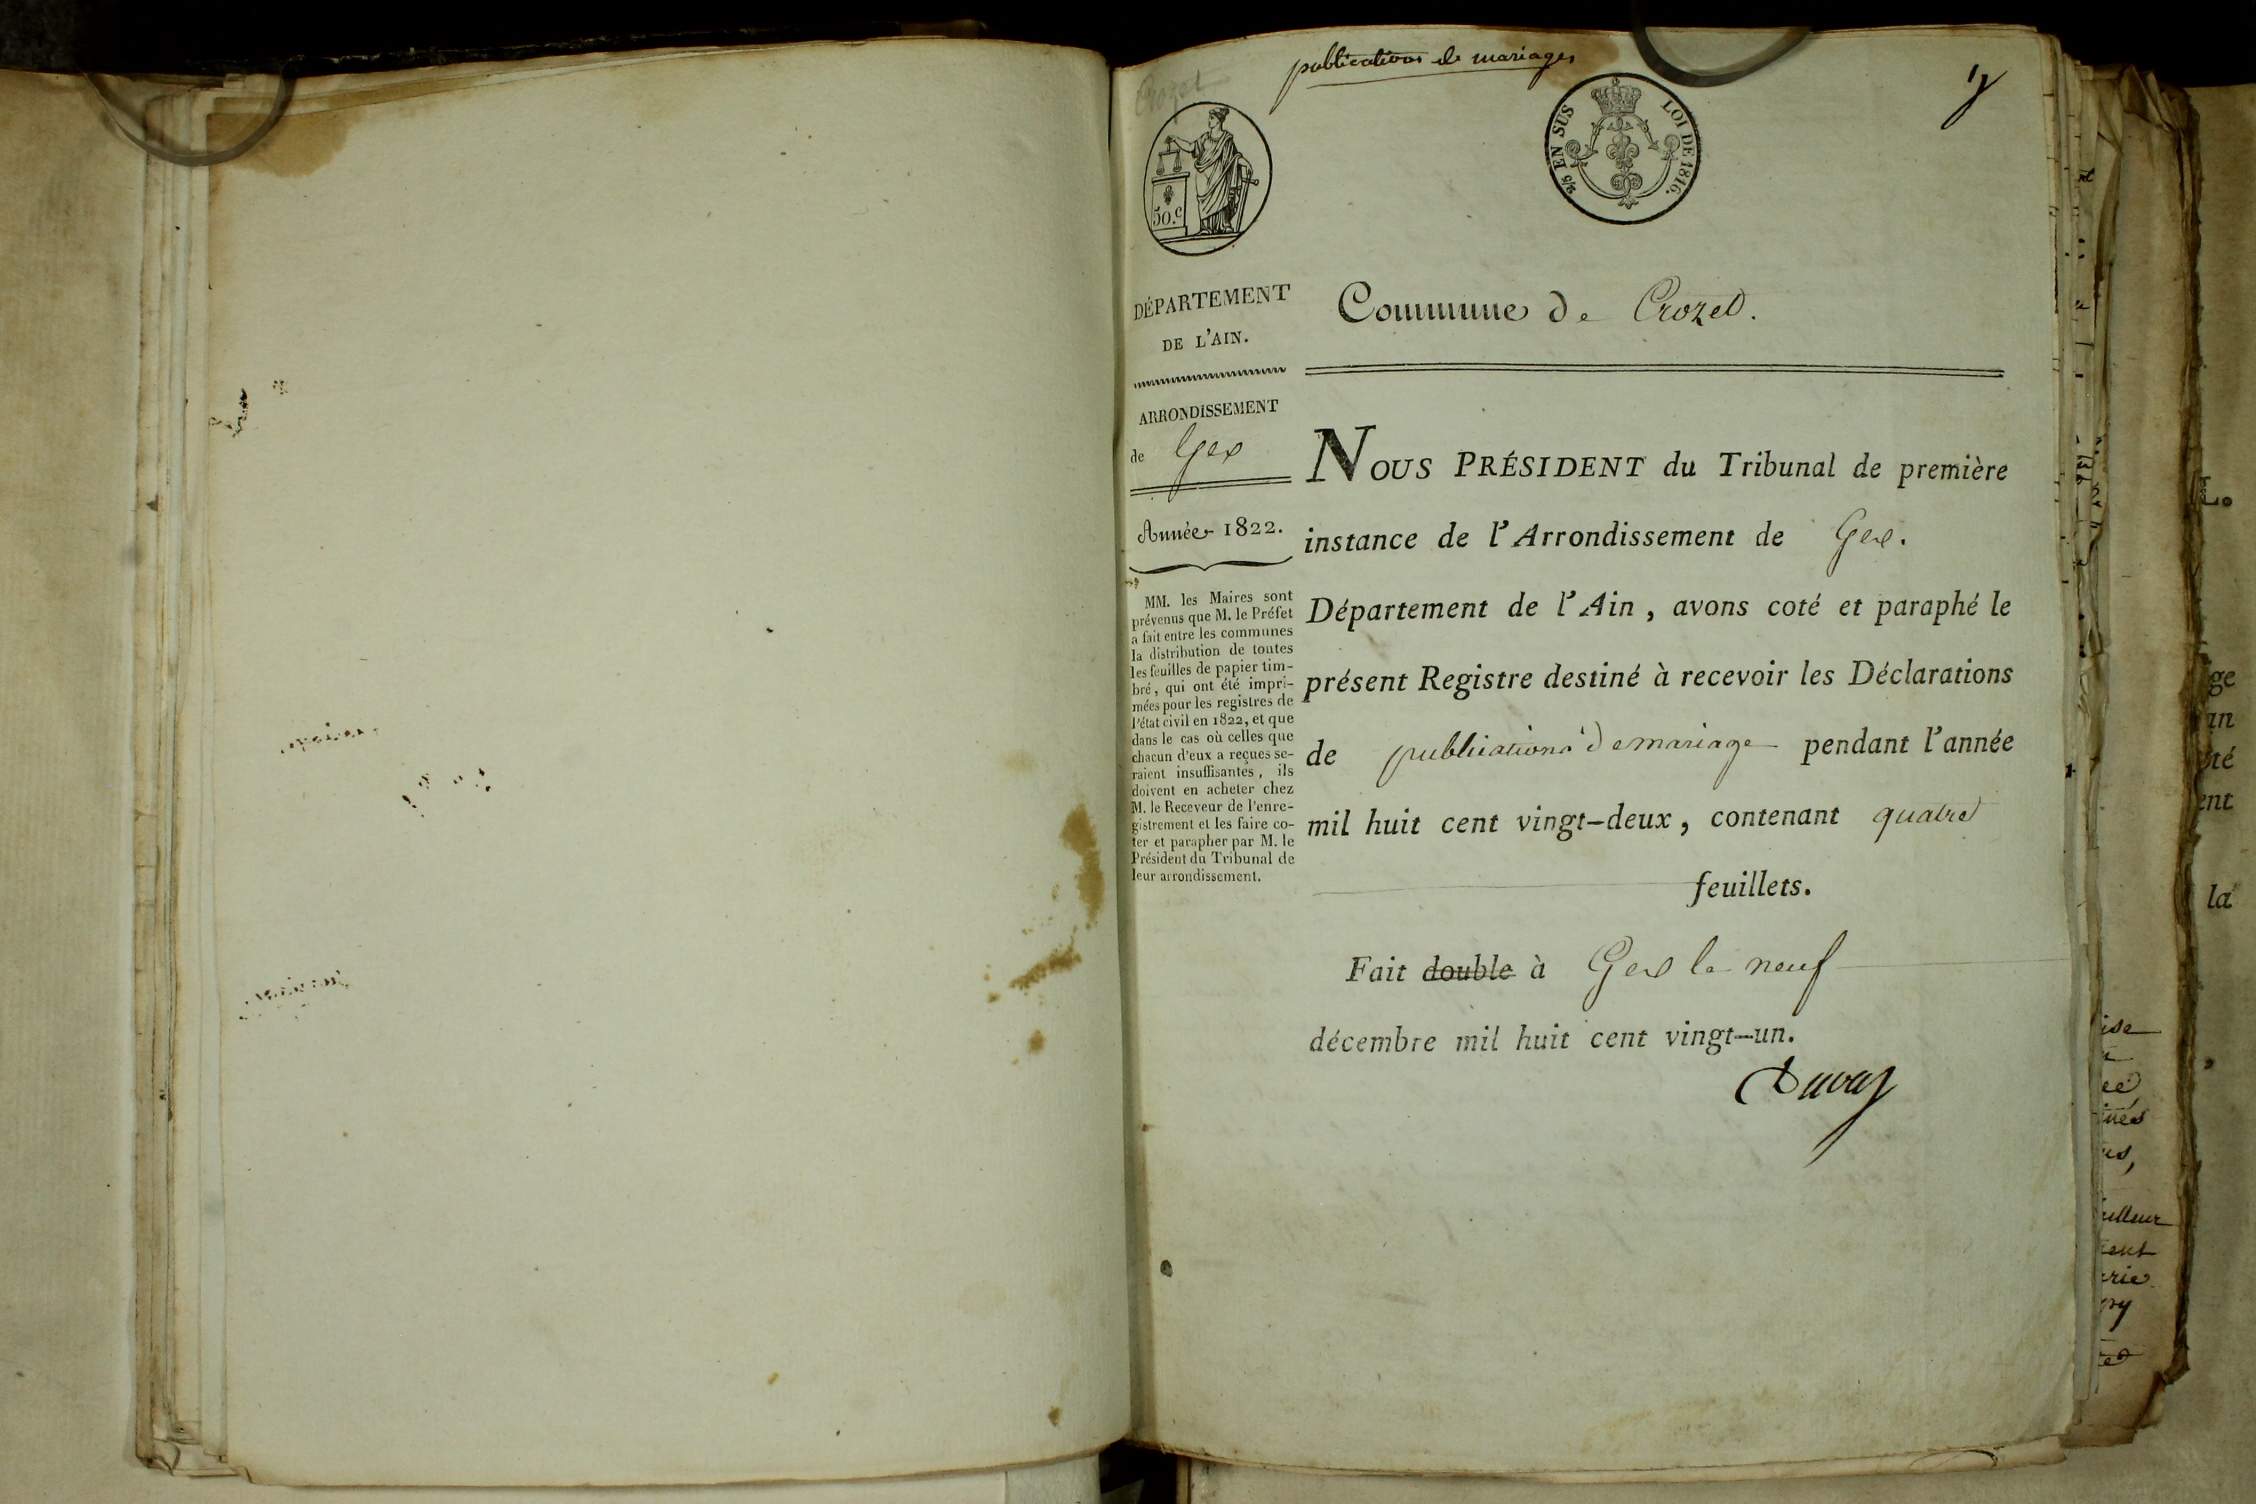 publications de mariages
Crozet
50.c
2/5 EN SUS LOI DE 1816.
DÉPARTEMENT
DE L'AIN.
ARRONDISSEMENT
de Gex
Année 1822.
MM. les Maires sont
prévenus que M. le Préfet
a fait entre les communes
la distribution de toutes
les feuilles de papier tim-
bré, qui ont été impri-
mées pour les registres de
l'état civil en 1822, et que
dans le cas où celles que
chacun d'eux a reçues se-
raient insuffisantes, ils
doivent en acheter chez
M. le Receveur de l'enre-
gistrement et les faire co-
ter et parapher par M. le
Président du Tribunal de
leur arrondissement.
Commune de Crozet.
NOUS PRÉSIDENT du Tribunal de première
instance de l'Arrondissement de Gex.
Département de l'Ain, avons coté et paraphé le
présent Registre destiné à recevoir les Déclarations
de publications de mariage pendant l'année
mil huit cent vingt-deux, contenant quatre
feuillets.
Fait double à Gex le neuf
décembre mil huit cent vingt-un.
ge
an
té
ent
la
ise
ée
nés
us,
ailleur
ent
rie